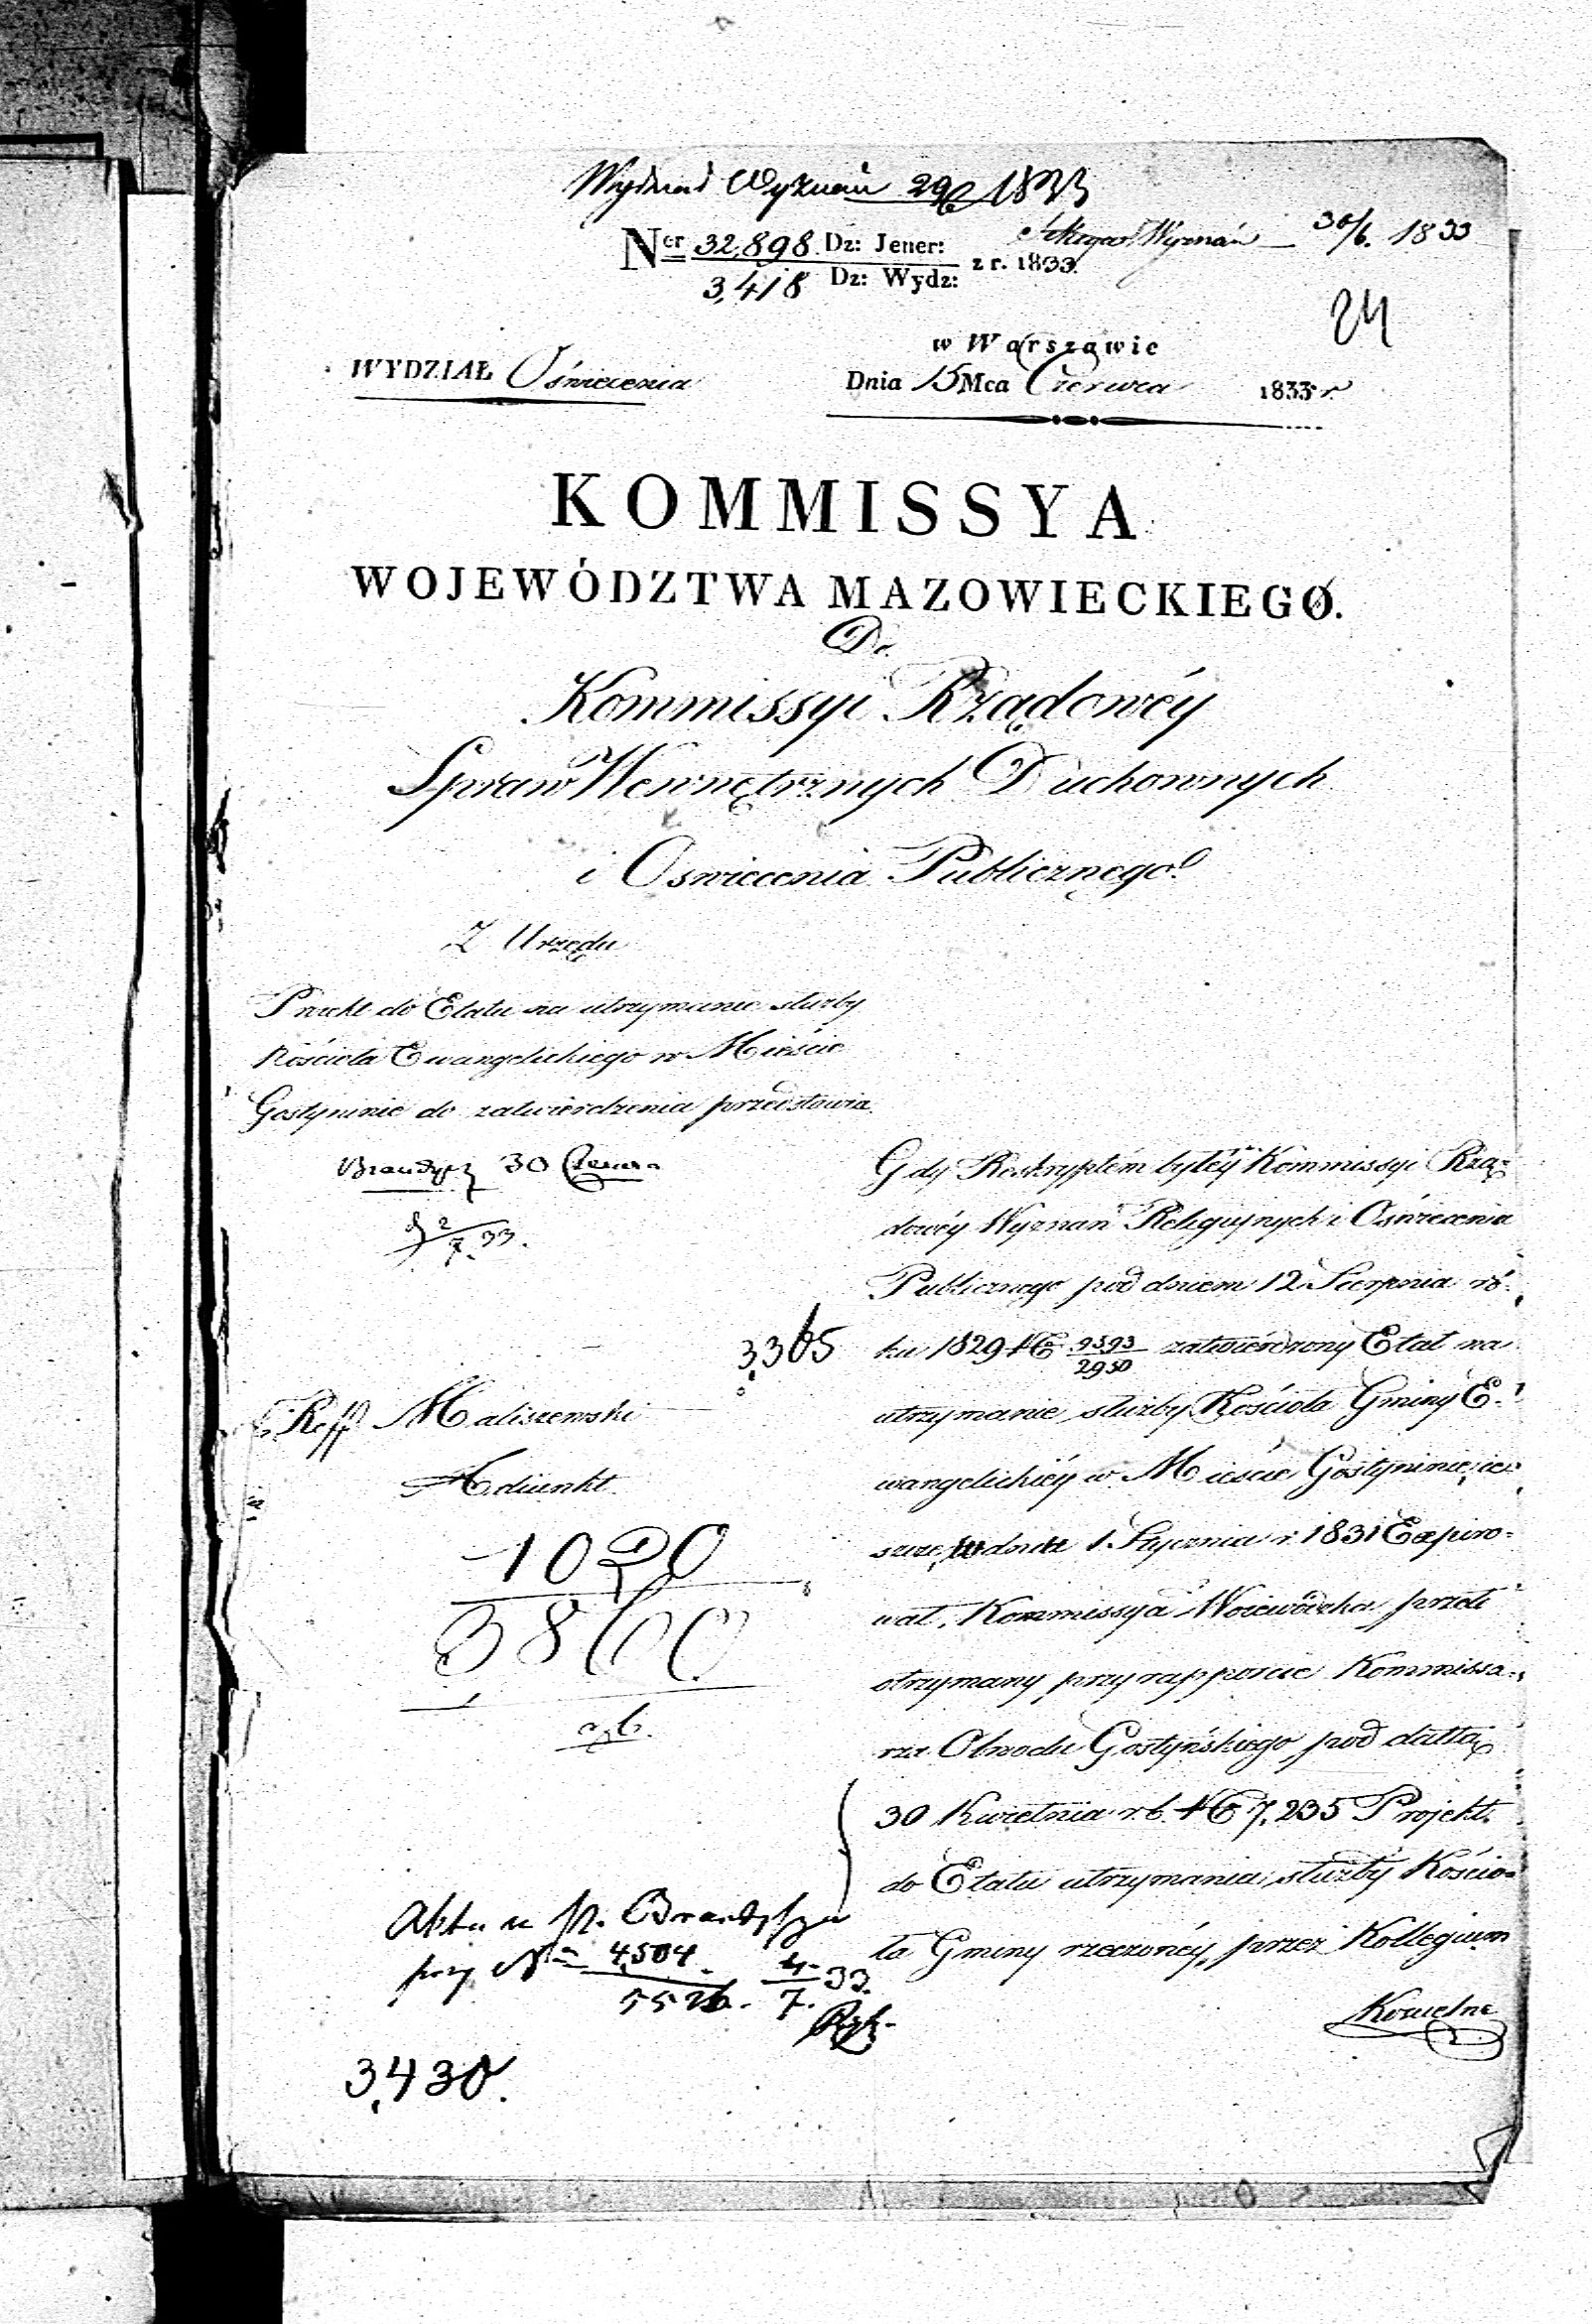 Wydział Wyznań 29/6 1833
Sekcya Wyznań 30/6. 1833
Ner 32,898. Dz: Jener: z r. 1833.
3,418 Dz: Wydz:
24
w Warszawie
WYDZIAŁ Oświecenia Dnia 15 Mca Czerwca 1833 r.
KOMMISSYA
WOJEWÓDZTWA MAZOWIECKIEGO.
Do
Kommissyi Rządowéy
Spraw Wewnętrznych Duchownych
i Oswiecenia Publicznego.
Z Urzędu
Proekt do Etatu na utrzymanie służby
Kościoła Ewangelickiego w Mieście
Gostyninie do zatwierdzenia przedstawia.
Brandysz 30 Czerwca
2/7. 33.
3,365
Reff Maliszewski
Adiunkt.
1020
3860
Akta u p. Brandysza
przy No 4504 4/7. 33.
5526.
3,430.
Gdy Reskryptem byłéy Kommissyi Rzą=
dowéy Wyznań Religijnych i Oświecenia
Publicznego pod dniem 12 Sierpnia ro=
ku 1829 No 9593/2950 zatwierdzony Etat na
utrzymanie służby Kościoła Gminy E=
wangelickiéy w Mieście Gostyninie, ie=
szcze dnia 1 Stycznia r. 1831 Expiro=
wał, Kommissya Woiewódzka przeto
otrzymany przy rapporcie Kommissa=
rza Obwodu Gostyńskiego pod dattą
30 Kwietnia r. b. No 7,235 Projekt
do Etatu utrzymania służby Kościo=
ła Gminy rzeczonéy, przez Kollegium
Kościelne